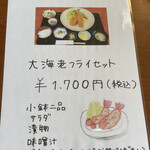 大海老フライセット
¥1,700円(税込)
小鉢二品
サラダ
漬物
味噌汁